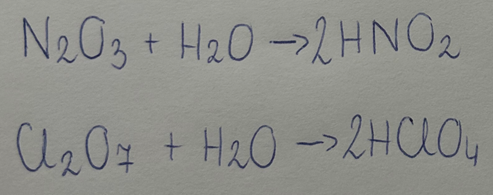 N₂O₃ + H₂O → 2HNO₂
Cl₂O₇ + H₂O → 2HClO₄